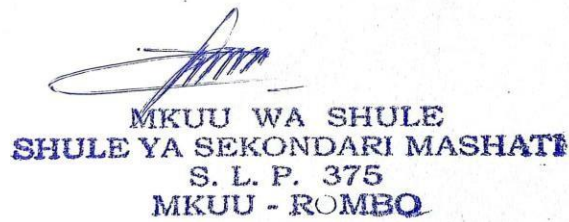 MKUU WA SHULE
SHULE YA SEKONDARI MASHATI
S. L. P. 375
MKUU - ROMBO